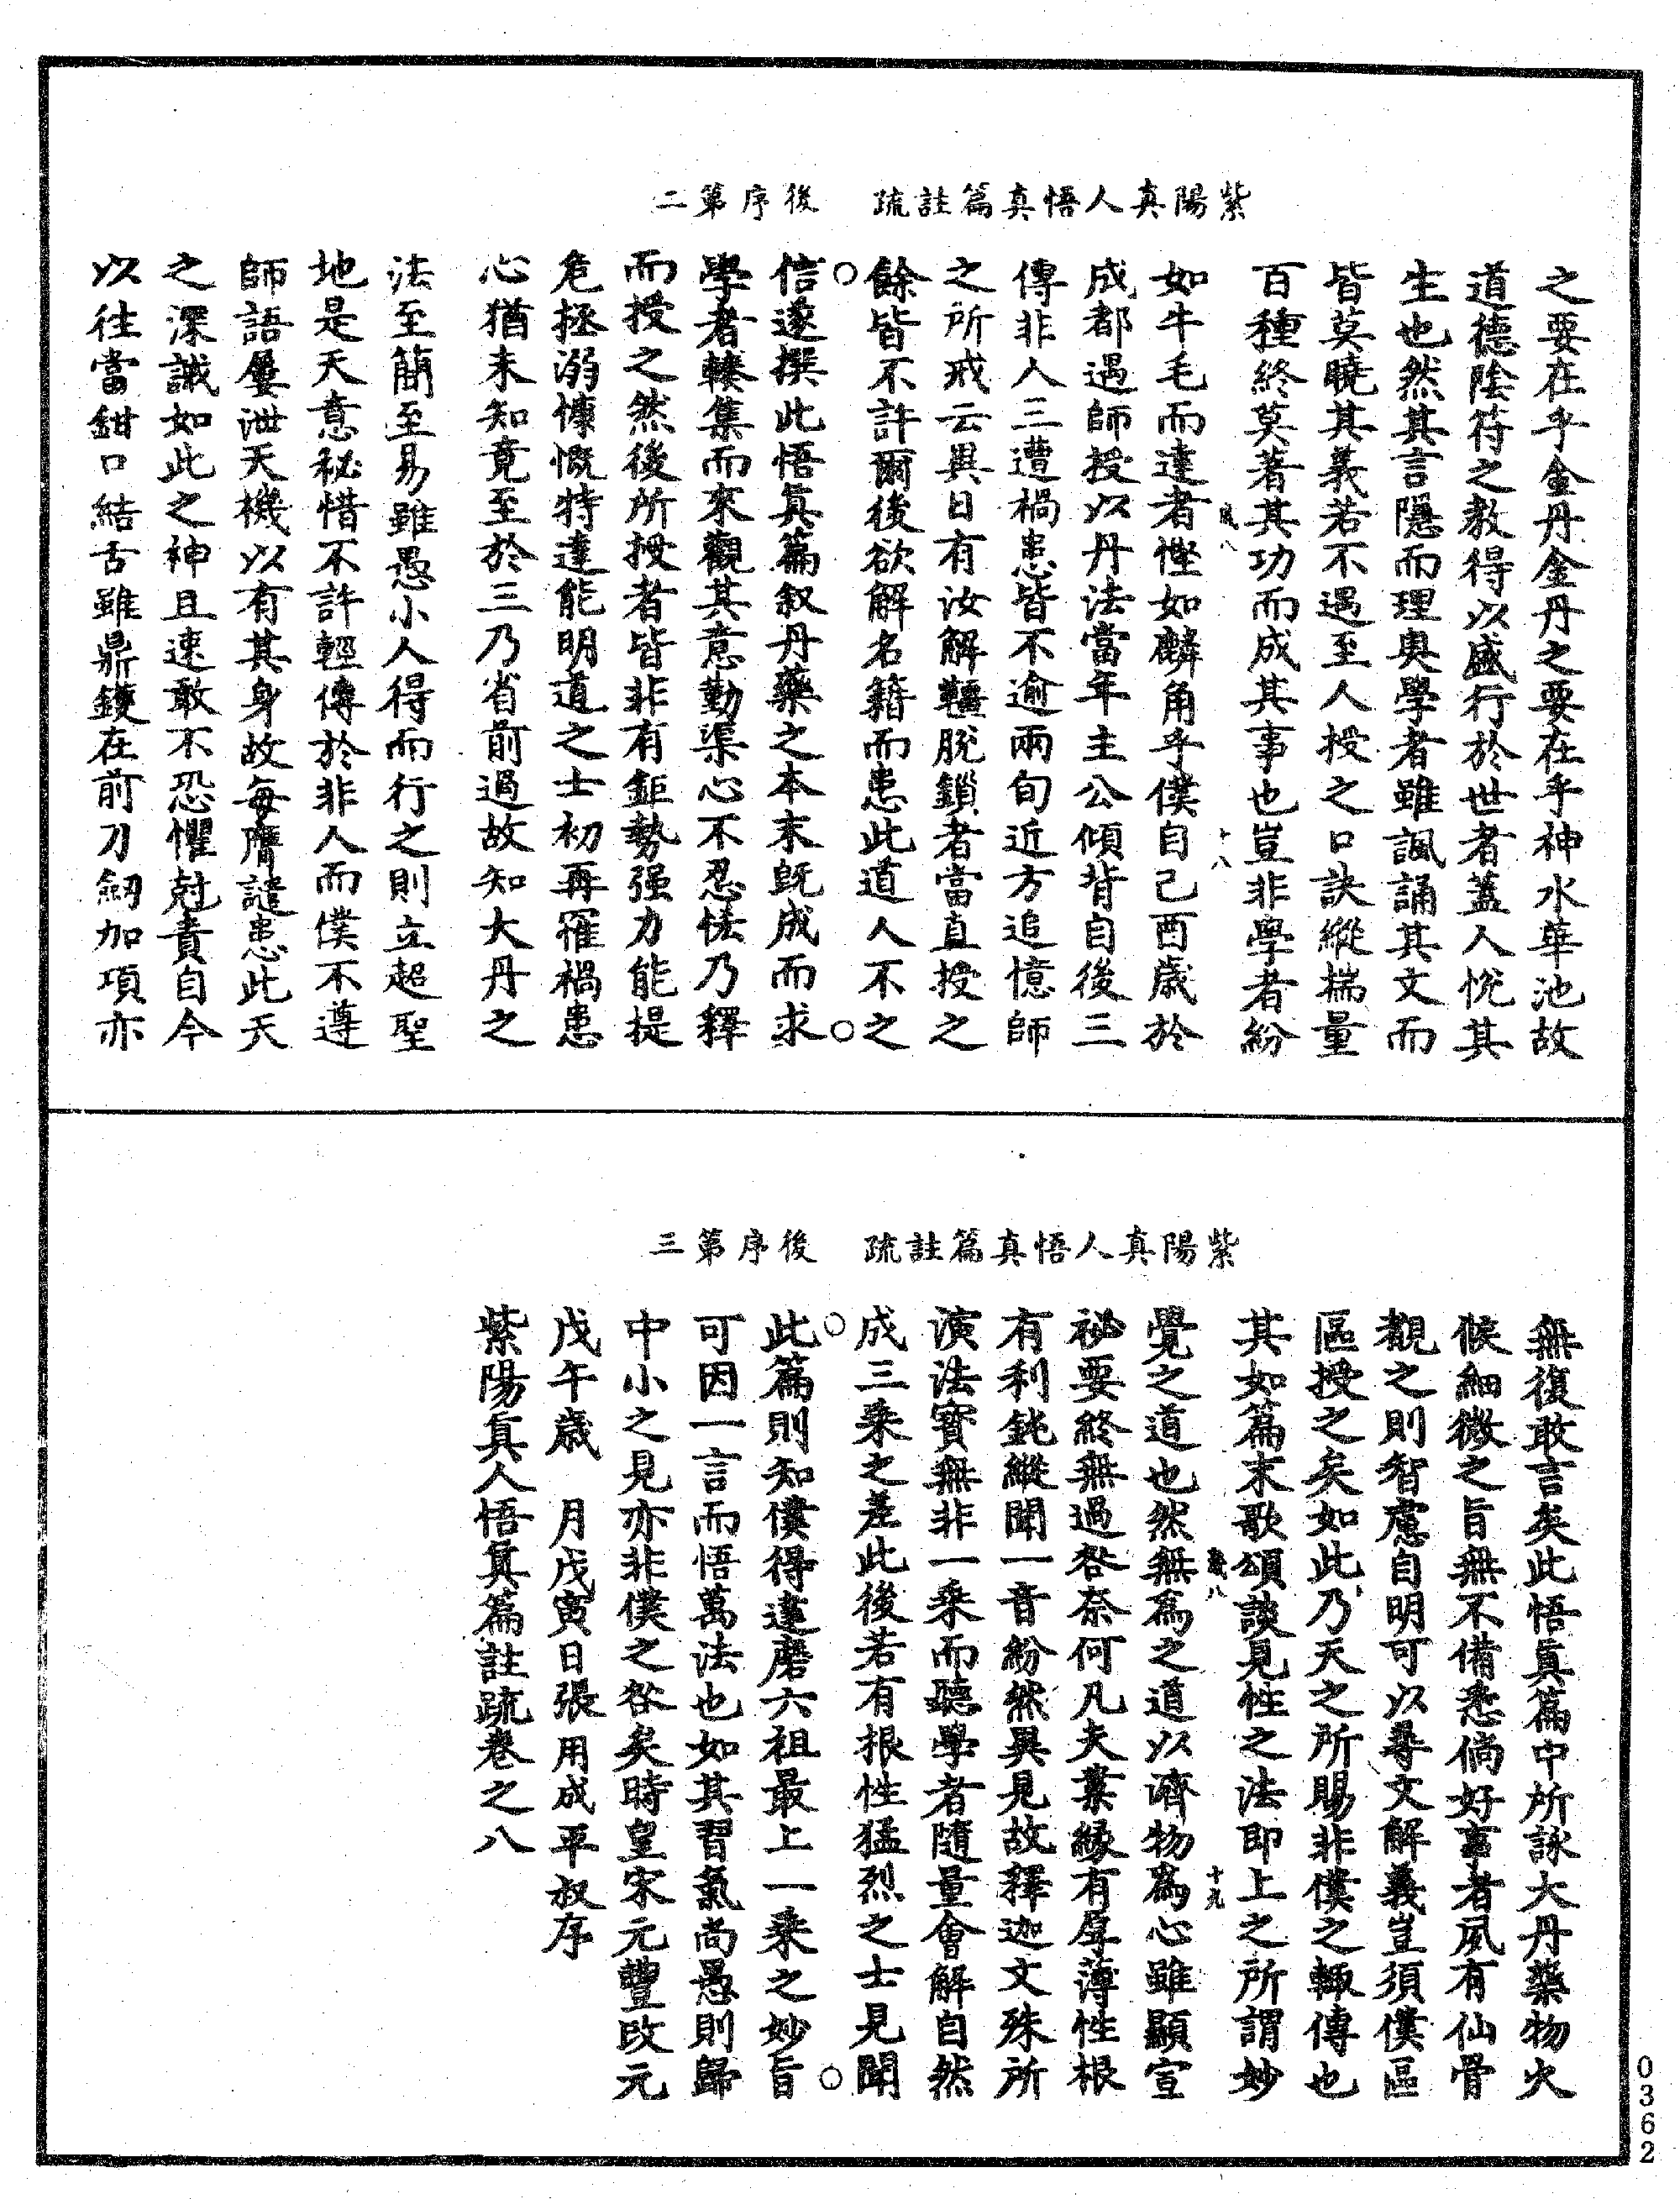 紫陽真人悟真篇註疏　後序第二
之要在乎金丹金丹之要在乎神水華池故
道德陰符之教得以盛行於世者蓋人悅其
生也然其言隱而理奥學者雖諷誦其文而
皆莫曉其義若不遇至人授之口訣縱揣量
百種終莫著其功而成其事也豈非學者紛
八　十八
如牛毛而達者慳如麟角乎僕自己酉歲於
成都遇師授以丹法當年主公傾背自後三
傳非人三遭禍患皆不逾兩旬近方追憶師
之所戒云異日有汝解韁脫鎖者當直授之
餘皆不許爾後欲解名籍而患此道人不之
信遂撰此悟眞篇叙丹藥之本末旣成而求
學者輳集而來觀其意勤渠心不忍恡乃釋
而授之然後所授者皆非有鉅勢强力能提
危拯溺慷慨特達能明道之士初再罹禍患
心猶未知竟至於三乃省前過故知大丹之
法至簡至易雖愚小人得而行之則立超聖
地是天意秘惜不許輕傳於非人而僕不遵
師語屢泄天機以有其身故每膺譴患此天
之深誡如此之神且速敢不恐懼尅責自今
以往當鉗口結舌雖鼎鑊在前刀劒加項亦
紫陽真人悟真篇註疏　後序第三
無復敢言矣此悟眞篇中所詠大丹藥物火
候細微之旨無不備悉倘好事者夙有仙骨
觀之則智慮自明可以尋文解義豈須僕區
區授之矣如此乃天之所賜非僕之輙傳也
其如篇末歌頌談見性之法即上之所謂妙
八　十九
覺之道也然無爲之道以濟物爲心雖顯宣
祕要終無過咎奈何凡夫業緣有厚薄性根
有利鈍縱聞一音紛然異見故釋迦文殊所
演法寶無非一乘而聽學者隨量會解自然
成三乘之差此後若有根性猛烈之士見聞
此篇則知僕得達磨六祖最上一乘之妙旨
可因一言而悟萬法也如其習氣尚愚則歸
中小之見亦非僕之咎矣時皇宋元豐改元
戊午歲　月戊寅日張用成平叔序
紫陽眞人悟眞篇註疏卷之八
0362